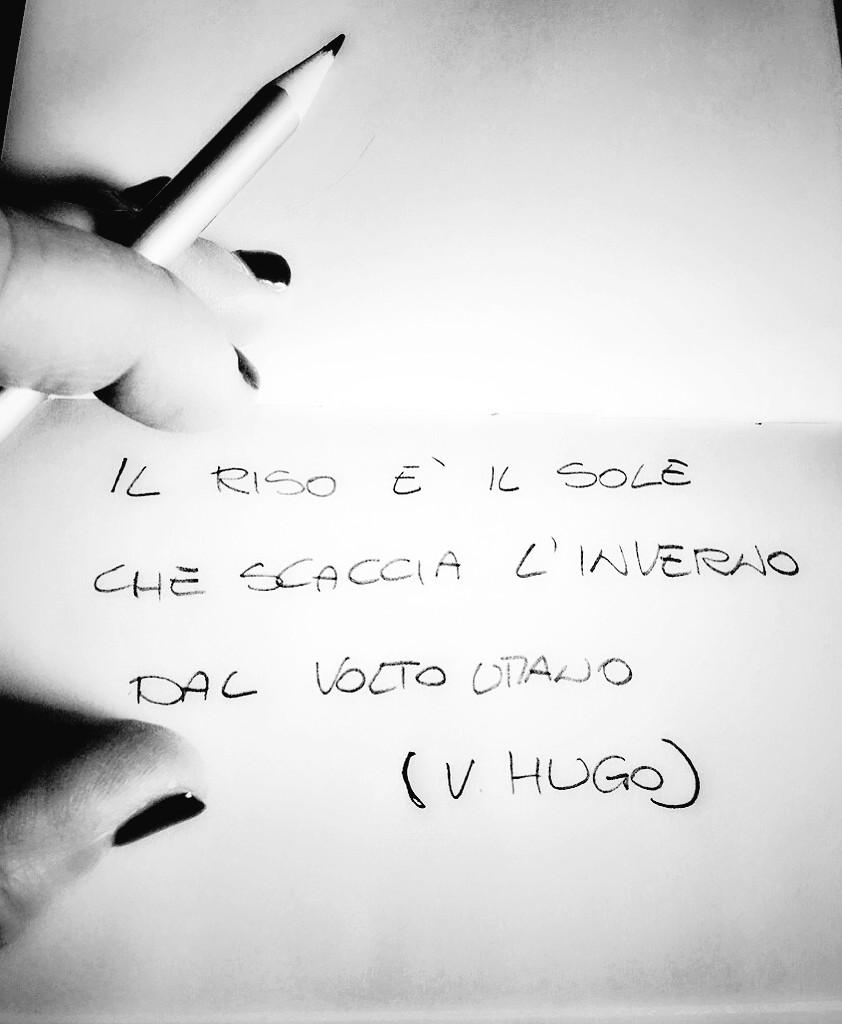 IL RISO E' IL SOLE
CHE SCACCIA L'INVERNO
DAL VOLTO UMANO
(V. HUGO)